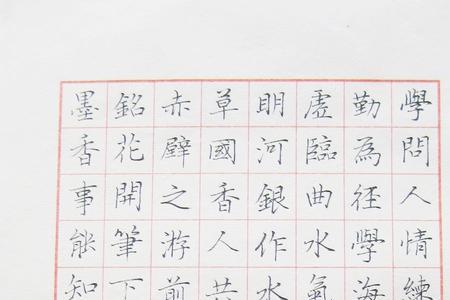 學問人情練
勤為徑學海
虛臨曲水氣
明河銀作水
草國香人共
赤壁之游前
銘花開筆下
墨香事能知